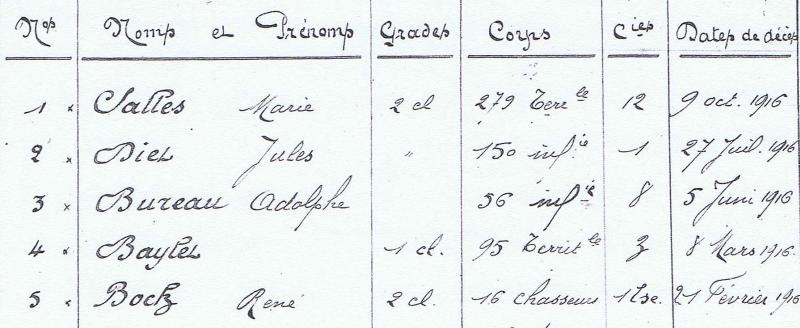 Nos Noms et Prénoms Grades Corps Cies Dates de décès
1 × Salles Marie 2 cl 279 Terrle 12 9 oct. 1916
2 × Diet Jules " 150 infie 1 27 Juil. 1916
3 × Bureau Adolphe 56 infie 8 5 Juni 1916
4 × Baylet 1 cl. 95 Territle 3 8 Mars 1916.
5 × René 2 cl. 16 chasseurs 21 Février 1916